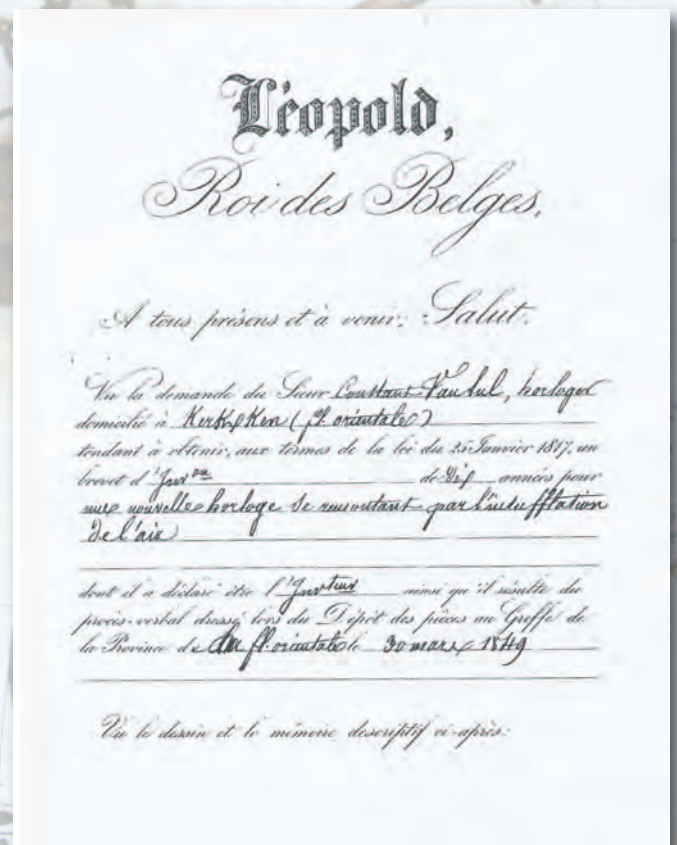 Léopold,
Roi des Belges,
A tous présens et à venir, Salut.
Vu la demande du Sieur Constant horloger
domicilié à Kerkxken (fl. orientale)
tendant à obtenir, aux termes de la loi du 25 Janvier 1817, un
brevet d'Invon de dix années pour
une nouvelle horloge se remontant par l'insufflation
de l'air
dont il a déclaré être l'Invteur ainsi qu'il résulte du
procès-verbal dressé lors du Dépôt des pièces au Greffe de
la Province de la fl. orientale le 30 mars 1849
Vu le dessin et le mémoire descriptif ci-après: